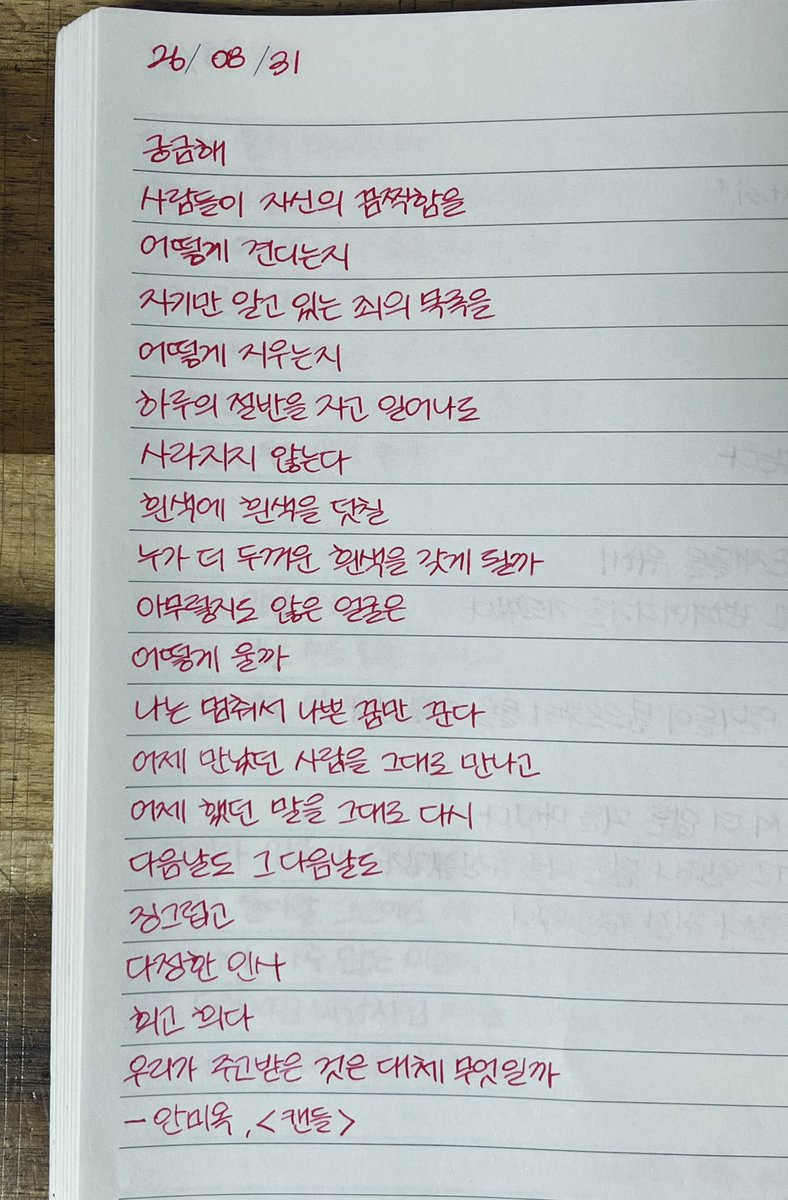 26/ 08 /31
궁금해
사람들이 자신의 끔찍함을
어떻게 견디는지
자기만 알고 있는 죄의 목록을
어떻게 지우는지
하루의 절반을 자고 일어나도
사라지지 않는다
흰색에 흰색을 덧칠
누가 더 두꺼운 흰색을 갖게 될까
아무렇지도 않은 얼굴은
어떻게 울까
나는 멈춰서 나쁜 꿈만 꾼다
어제 만났던 사람을 그대로 만나고
어제 했던 말을 그대로 다시
다음날도 그다음날도
징그럽고
다정한 인사
희고 희다
우리가 주고받은 것은 대체 무엇일까
- 안미옥, <캔들>